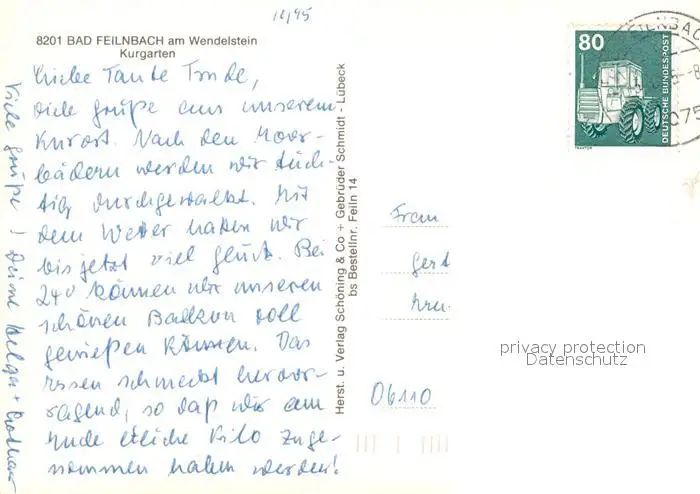 10/95
8201 BAD FEILNBACH am Wendelstein
Kurgarten
Liebe Tante Trude,
viele Grüße aus unserem
Kurort. Nach den Moor-
bädern werden wir tüch-
tig durchgewalkt. Mit
dem Wetter haben wir
bis jetzt viel Glück. Bei
24° können wir unseren
schönen Balkon voll
genießen können. Das
Essen schmeckt hervor-
ragend, so daß wir am
Ende etliche Kilo zuge-
nommen haben werden!
Viele Grüße! Deine Helga + Lothar
Herst. u. Verlag Schöning & Co + Gebrüder Schmidt - Lübeck
bs Bestellnr. Feiln 14
80
DEUTSCHE BUNDESPOST
TRAKTOR
FEILNBACH
8075
Frau
Gert
06110
privacy protection
Datenschutz